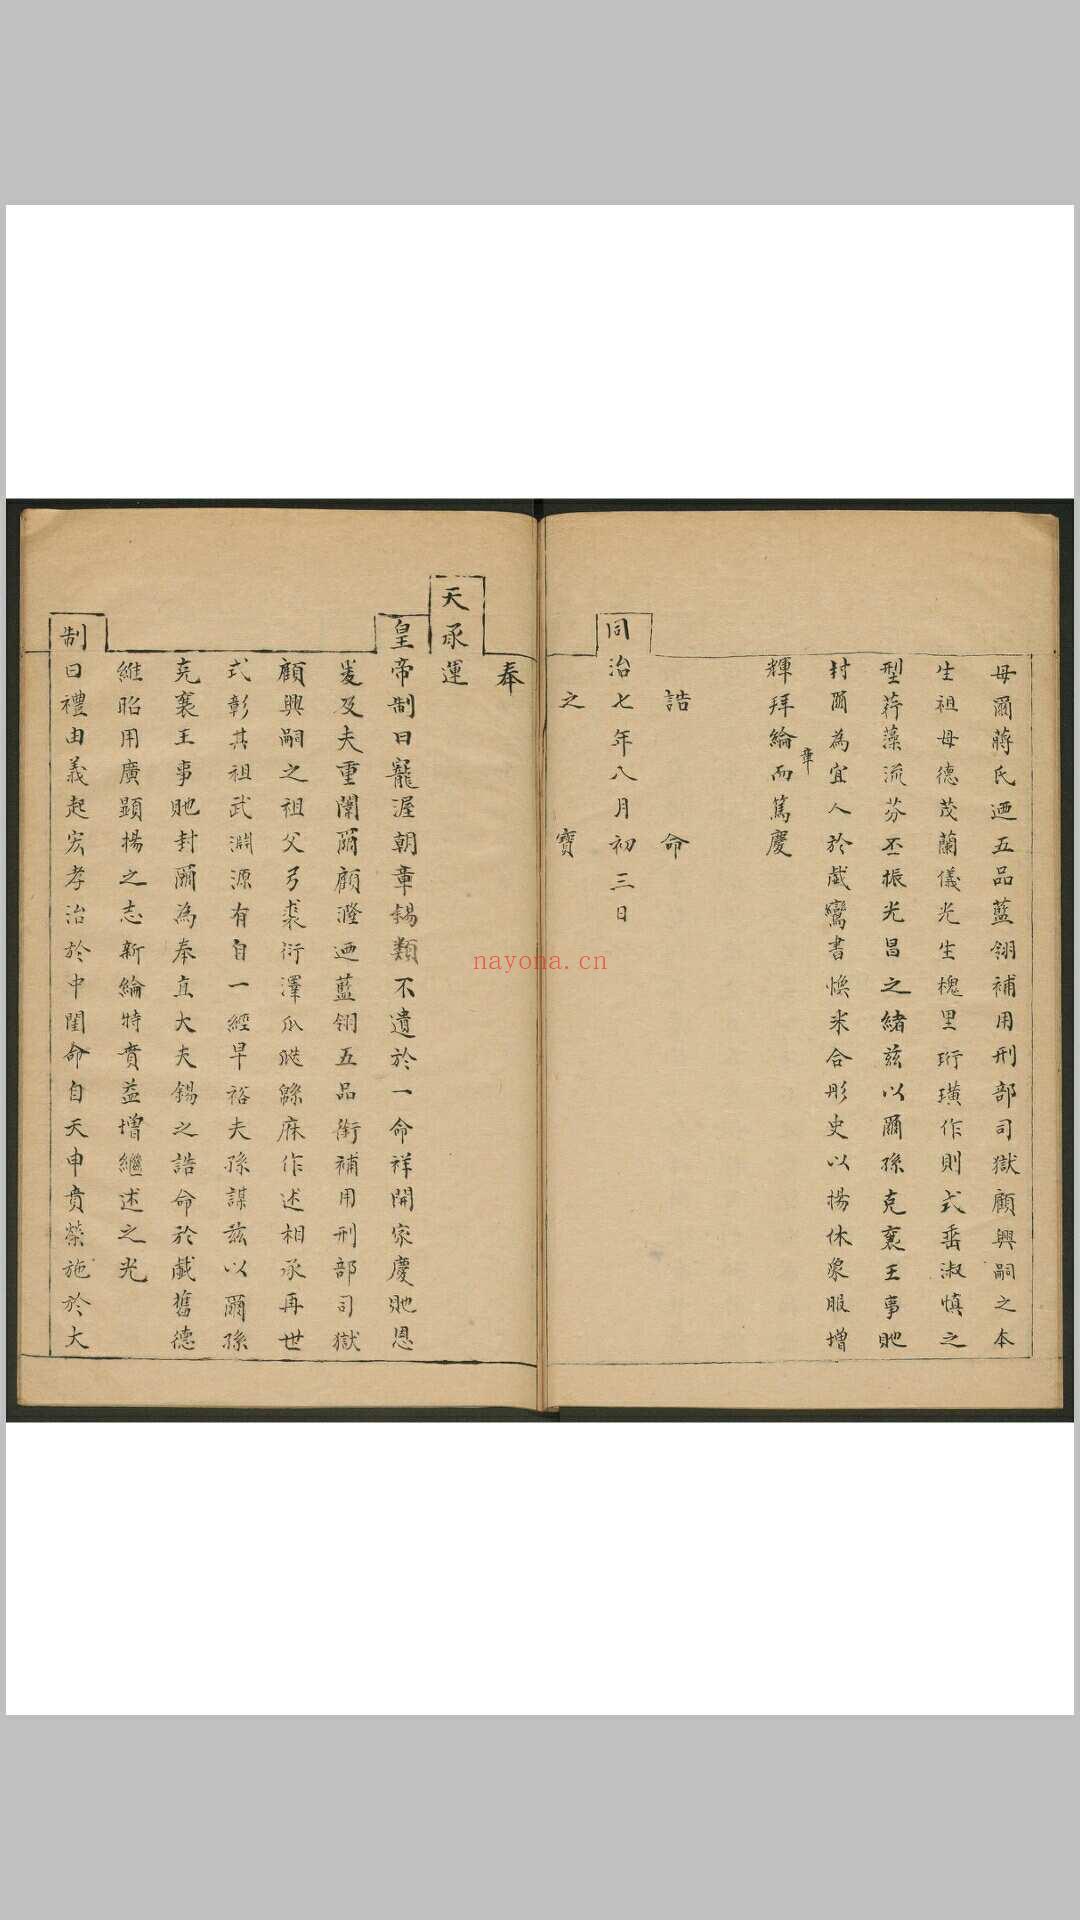 母爾蔣氏迺五品藍翎補用刑部司獄顧興嗣之本
生祖母德茂蘭儀光生槐里珩璜作則式垂淑慎之
型荇藻流芬丕振光昌之緒茲以爾孫克襄王事貤
封爾為宜人於戲鸞書煥采合彤史以揚休象服增
章
輝拜綸而篤慶
誥命
同治七年八月初三日
之寶
奉
天承運
皇帝制曰寵渥朝章錫類不遺於一命祥開家慶貤恩
爰及夫重闈爾顧瀅迺藍翎五品銜補用刑部司獄
顧興嗣之祖父弓裘衍澤瓜瓞緜庥作述相承再世
式彰其祖武淵源有自一經早裕夫孫謀茲以爾孫
克襄王事貤封爾為奉直大夫錫之誥命於戲舊德
維昭用廣顯揚之志新綸特賁益增繼述之光
制曰禮由義起宏孝治於中閨命自天申賁榮施於大
nayona.cn